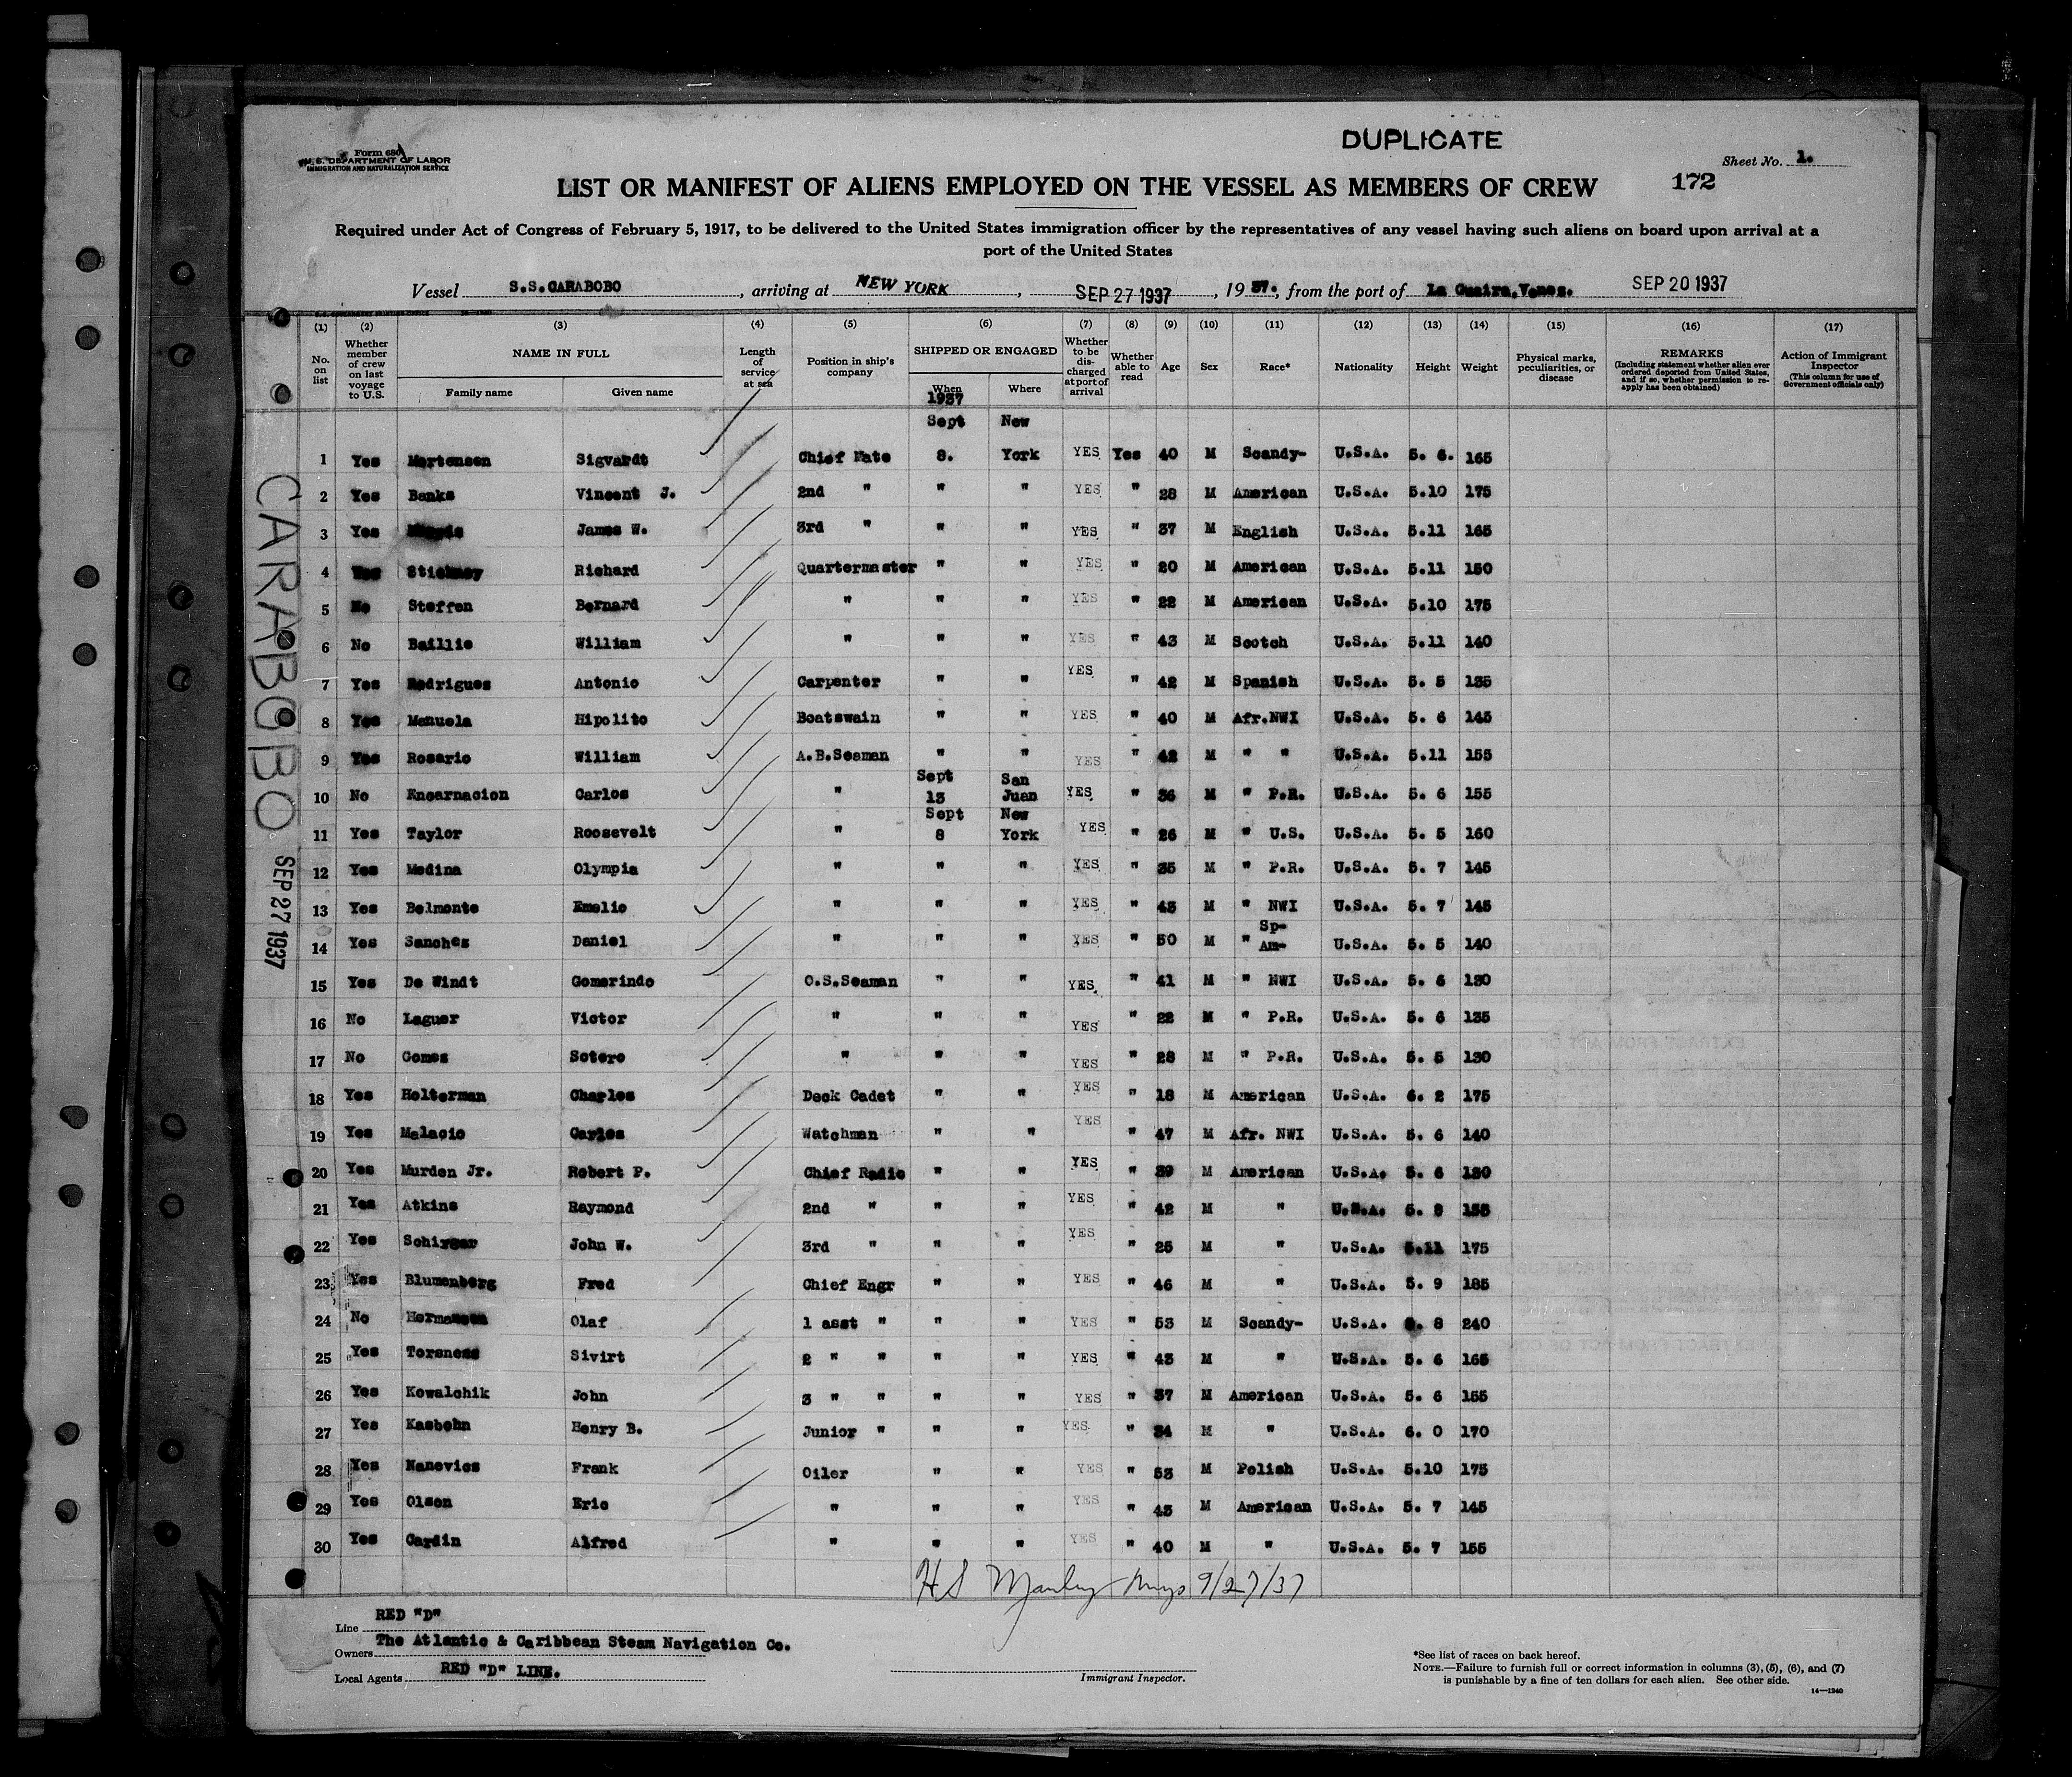 DUPLICATE
Form 680
U. S. DEPARTMENT OF LABOR
IMMIGRATION AND NATURALIZATION SERVICE
Sheet No. 1.
LIST OR MANIFEST OF ALIENS EMPLOYED ON THE VESSEL AS MEMBERS OF CREW
172
Required under Act of Congress of February 5, 1917, to be delivered to the United States immigration officer by the representatives of any vessel having such aliens on board upon arrival at a
port of the United States
Vessel S.S.CARABOBO, arriving at NEW YORK, SEP 27 1937, 1937., from the port of La Guaira,Venez. SEP 20 1937
(1) (2) (3) (4) (5) (6) (7) (8) (9) (10) (11) (12) (13) (14) (15) (16) (17)
No. on list
Whether member of crew on last voyage to U.S.
NAME IN FULL
Family name Given name
Length of service at sea
Position in ship's company
SHIPPED OR ENGAGED
When 1937 Where
Whether to be discharged at port of arrival
Whether able to read
Age
Sex
Race*
Nationality
Height
Weight
Physical marks, peculiarities, or disease
REMARKS
(Including statement whether alien ever ordered deported from United States, and if so, whether permission to reapply has been obtained)
Action of Immigrant Inspector
(This column for use of Government officials only)
Sept New
1 Yes Mortensen Sigvardt Chief Mate 8. York YES Yes 40 M Scandy- U.S.A. 5. 6. 165
2 Yes Banks Vincent J. 2nd " " " YES " 28 M American U.S.A. 5.10 175
3 Yes James W. 3rd " " " YES " 37 M English U.S.A. 5.11 165
4 Yes Stickney Richard Quartermaster " " YES " 20 M American U.S.A. 5.11 150
5 No Steffen Bernard " " " YES " 22 M American U.S.A. 5.10 175
6 No Baillie William " " " YES " 43 M Scotch U.S.A. 5.11 140
7 Yes Rodrigues Antonio Carpenter " " YES " 42 M Spanish U.S.A. 5. 5 135
8 Yes Manuela Hipolito Boatswain " " YES " 40 M Afr.NWI U.S.A. 5. 6 145
9 Yes Rosario William A.B.Seaman " " YES " 42 M " " U.S.A. 5.11 155
Sept San
10 No Encarnacion Carlos " 13 Juan YES " 36 M " P.R. U.S.A. 5. 6 155
Sept New
11 Yes Taylor Roosevelt " 8 York YES " 26 M " U.S. U.S.A. 5. 5 160
12 Yes Medina Olympia " " " YES " 35 M " P.R. U.S.A. 5. 7 145
13 Yes Belmonte Emelio " " " YES " 43 M " NWI U.S.A. 5. 7 145
14 Yes Sanchez Daniel " " " YES " 50 M " Sp-Am- U.S.A. 5. 5 140
15 Yes De Windt Gomerindo O.S.Seaman " " YES " 41 M " NWI U.S.A. 5. 6 130
16 No Laguer Victor " " " YES " 22 M " P.R. U.S.A. 5. 6 135
17 No Gomes Sotero " " " YES " 28 M " P.R. U.S.A. 5. 5 130
18 Yes Holterman Charles Deck Cadet " " YES " 18 M American U.S.A. 6. 2 175
19 Yes Malacio Carlos Watchman " " YES " 47 M Afr. NWI U.S.A. 5. 6 140
20 Yes Murden Jr. Robert P. Chief Radio " " YES " 39 M American U.S.A. 5. 6 130
21 Yes Atkins Raymond 2nd " " " YES " 42 M " U.S.A. 5. 8 155
22 Yes John W. 3rd " " " YES " 25 M " U.S.A. 5.11 175
23 Yes Blumenberg Fred Chief Engr " " YES " 46 M " U.S.A. 5. 9 185
24 No Olaf 1 asst " " " YES " 53 M Scandy- U.S.A. 8 240
25 Yes Torsness Sivirt 2 " " " " YES " 43 M " U.S.A. 5. 6 165
26 Yes Kowalchik John 3 " " " " YES " 37 M American U.S.A. 5. 6 155
27 Yes Kasbohn Henry B. Junior " " " YES " 34 M " U.S.A. 6. 0 170
28 Yes Nanevics Frank Oiler " " YES " 53 M Polish U.S.A. 5.10 175
29 Yes Olsen Eric " " " YES " 43 M American U.S.A. 5. 7 145
30 Yes Cardin Alfred " " " YES " 40 M " U.S.A. 5. 7 155
H S Manley 9/27/37
CARABOBO
SEP 27 1937
Line RED "D"
Owners The Atlantic & Caribbean Steam Navigation Co.
Local Agents RED "D" LINE.
Immigrant Inspector.
*See list of races on back hereof.
NOTE.—Failure to furnish full or correct information in columns (3), (5), (6), and (7)
is punishable by a fine of ten dollars for each alien. See other side.
14—1240